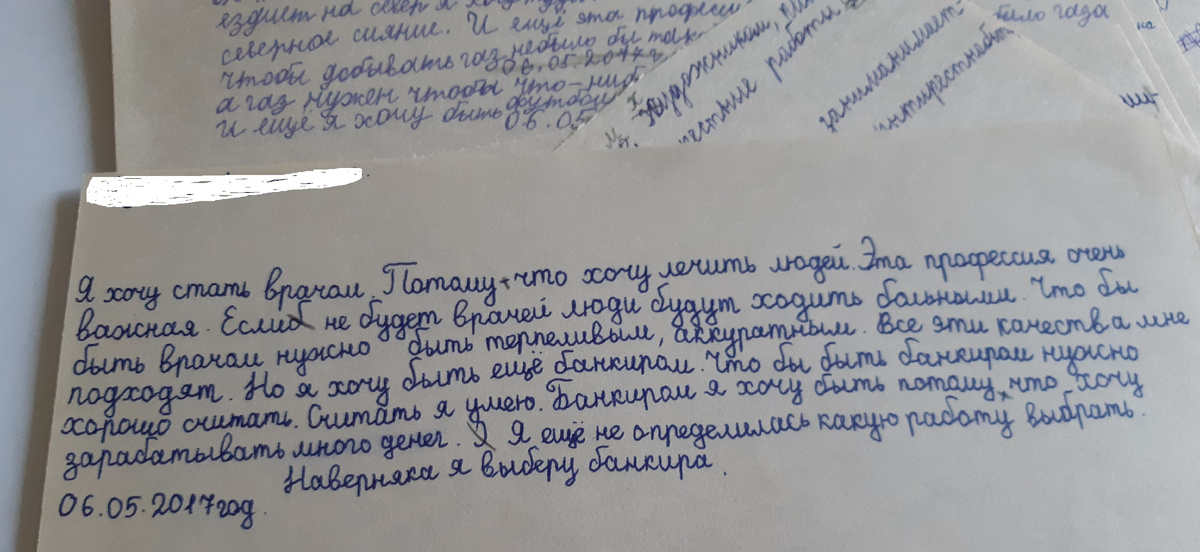 ездиет на север я
северное сияние. И ещё эта професси
чтобы добывать газ небыло бы так
06.05.2017г.
а газ нужен чтобы что-ниб
И ещё я хочу быть футбол
06.05
художником,
работы
занимает
было газа
на
Я хочу стать врачом. Потому что хочу лечить людей. Эта профессия очень
важная. Если не будет врачей люди будут ходить больными. Что бы
быть врачом нужно быть терпеливым, аккуратным. Все эти качества мне
подходят. Но я хочу быть ещё банкиром. Что бы быть банкиром нужно
хорошо считать. Считать я умею. Банкиром я хочу быть потому что хочу
зарабатывать много денег. Я ещё не определилась какую работу выбрать.
Наверняка я выберу банкира.
06.05.2017год.